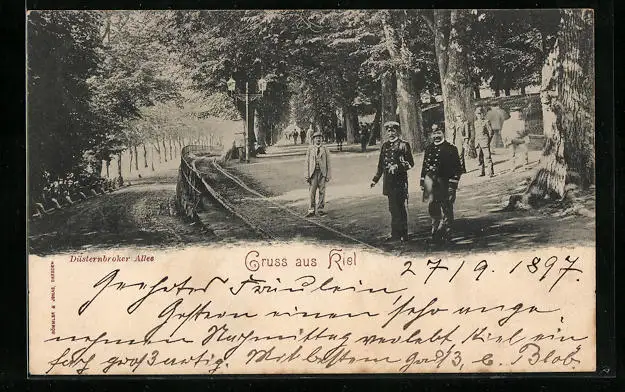 Düsternbroker Allee
Gruss aus Kiel
27/9. 1897.
RÖMMLER & JONAS, DRESDEN
Geehrtes Fräulein,
Gestern einen sehr ange-
nehmen Nachmittag verlebt Kiel ein-
fach großartig. Mit bestem Gruß, C. Blob.